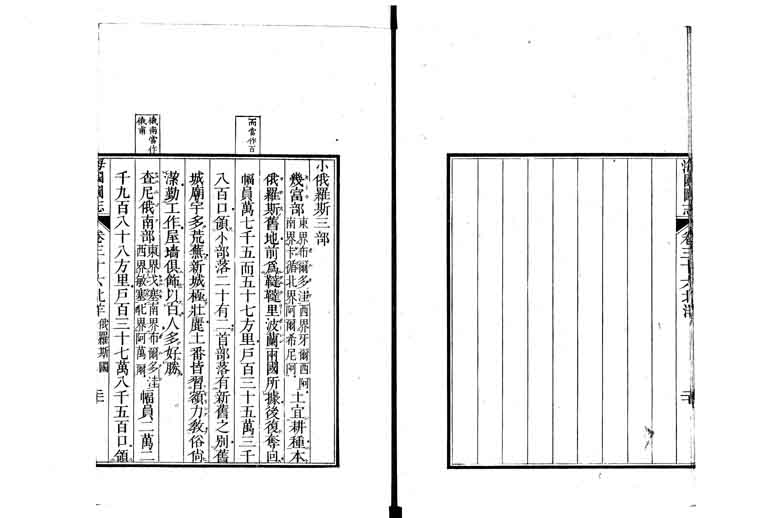 海國圖志
卷三十六北洋
而當作百
俄南當作
俄甫
小俄羅斯三部
幾富部東界布爾多洼西界牙爾西阿南界卡循北界阿爾希尼阿土宜耕種本
俄羅斯舊地前爲韃韃里波蘭兩國所據後復奪回
幅員萬七千五而五十七方里戶百三十五萬三千
八百口領小部落二十有二首部落有新舊之別舊
城廟宇多荒蕪新城極壯麗土番皆習額力敎俗尚
潔勤工作屋墻俱飾以百人多好勝
查尼俄南部東界戈塞南界布爾多洼西界敏塞北界阿萬爾幅員二萬二
千九百八十八方里戶百三十七萬八千五百口領
海國圖志
卷三十六北洋 俄羅斯國